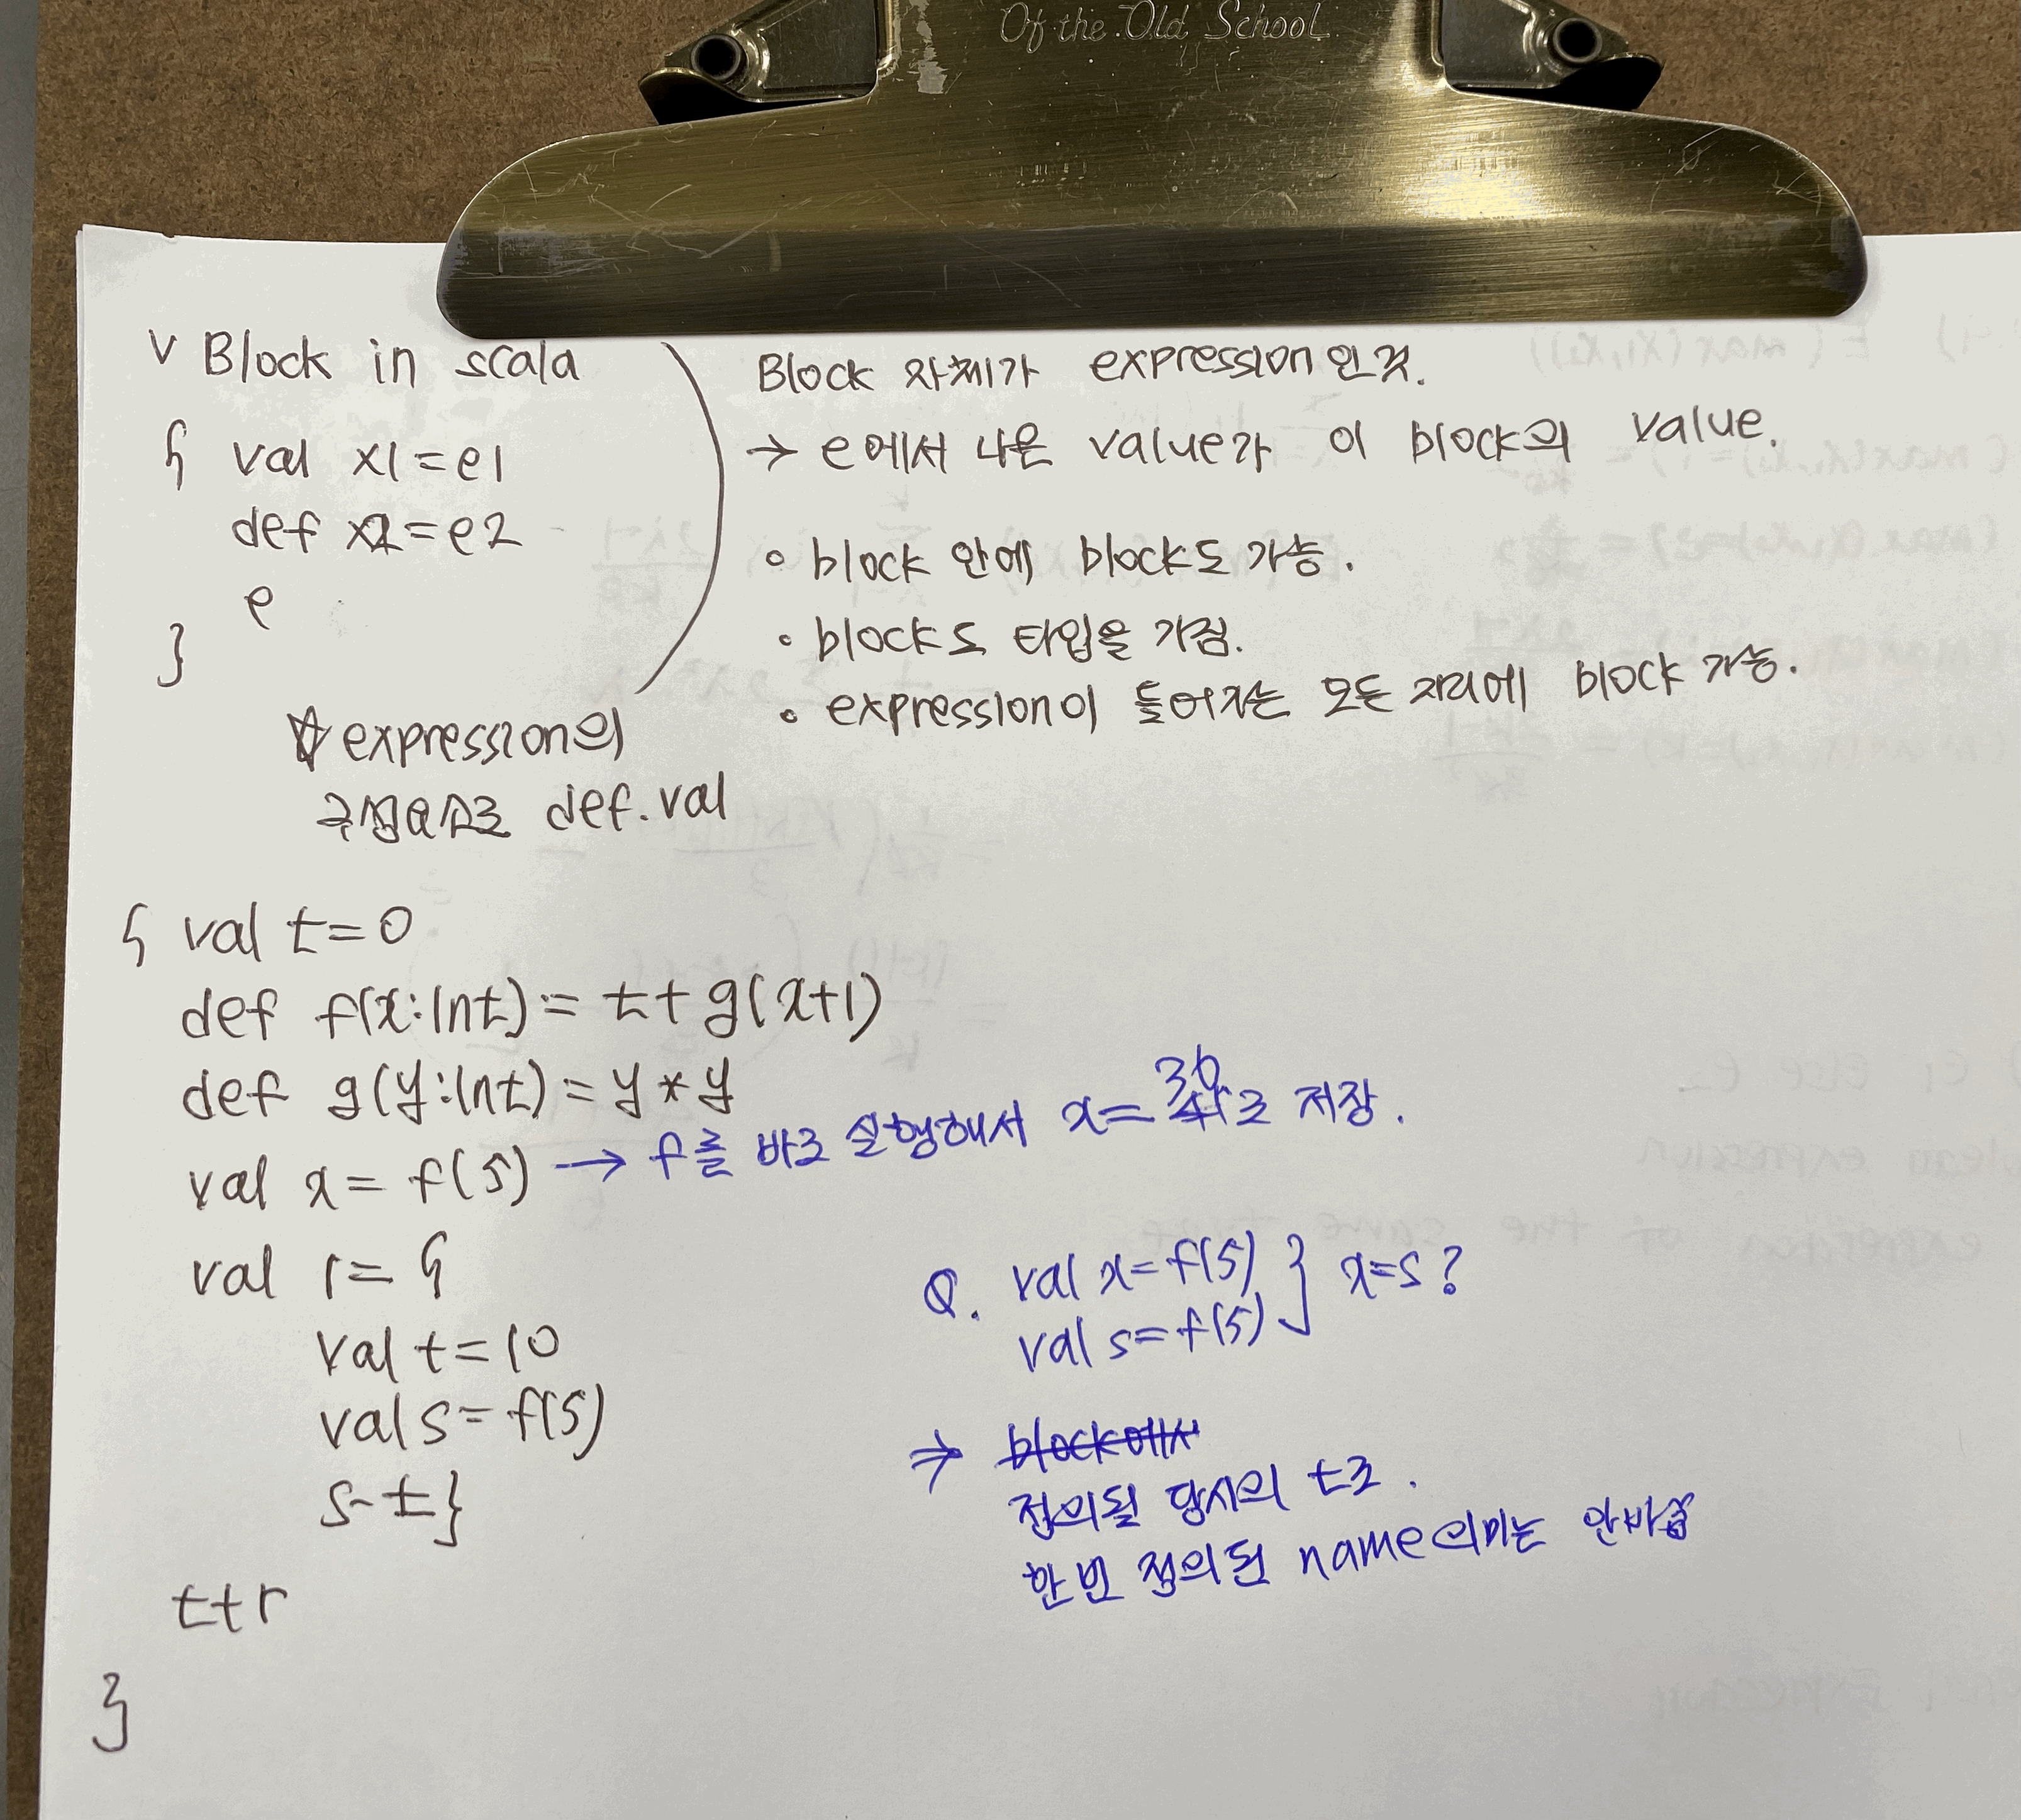 Of the Old School
v Block in scala
{ val x1 = e1
def x2 = e2
e
}
Block 자체가 expression인것.
→ e에서 나온 value가 이 block의 value.
◦ block 안에 block도 가능.
◦ block도 타입을 가짐.
◦ expression이 들어가는 모든 자리에 block 가능.
∀ expression의
구성요소로 def. val
{ val t = 0
def f(x:Int) = t + g(x+1)
def g(y:Int) = y * y
val x = f(5) → f를 바로 실행해서 x = 36로 저장.
val r = {
val t = 10
val s = f(5)
s - t }
t + r
}
Q. val x = f(5) } x = s ?
val s = f(5)
⇒ block에서
정의될 당시의 t로.
한번 정의된 name의미는 안바뀜